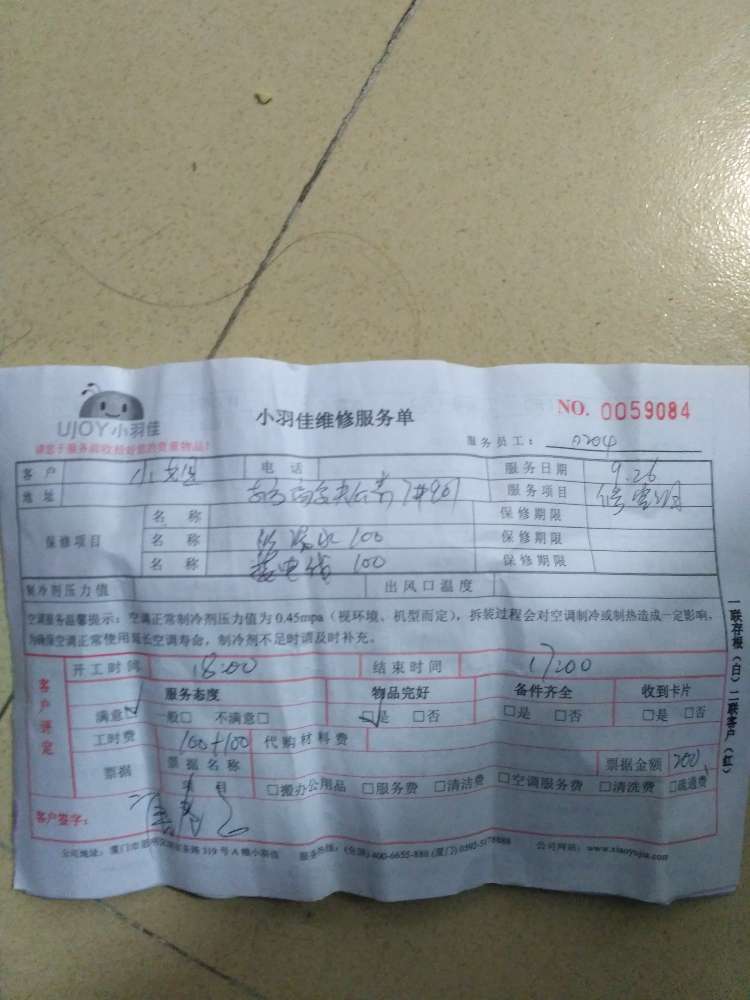 UJOY小羽佳
小羽佳维修服务单
NO. 0059084
服务员工: 0204
客户 电话 服务日期 9.26
地址 7#901 服务项目
名称 保修期限
保修项目 名称 100 保修期限
名称 电线 100 保修期限
制冷剂压力值 出风口温度
空调服务温馨提示：空调正常制冷剂压力值为0.45mpa（视环境、机型而定），拆装过程会对空调制冷或制热造成一定影响，
为确保空调正常使用延长空调寿命，制冷剂不足时请及时补充。
开工时间 18:00 结束时间
客户评定
服务态度 物品完好 备件齐全 收到卡片
满意□ 一般□ 不满意□ □是 □否 □是 □否 □是 □否
工时费 100+100 代购材料费
票据 票据名称 票据金额 200
项目 □搬办公用品 □服务费 □清洁费 □空调服务费 □清洗费 □疏通费
客户签字：
公司地址： 319号A幢小羽佳 服务热线：(全国)400-6655-886 (厦门) 公司网站：www.xiaoyujia.com
一联存根（白）二联客户（红）